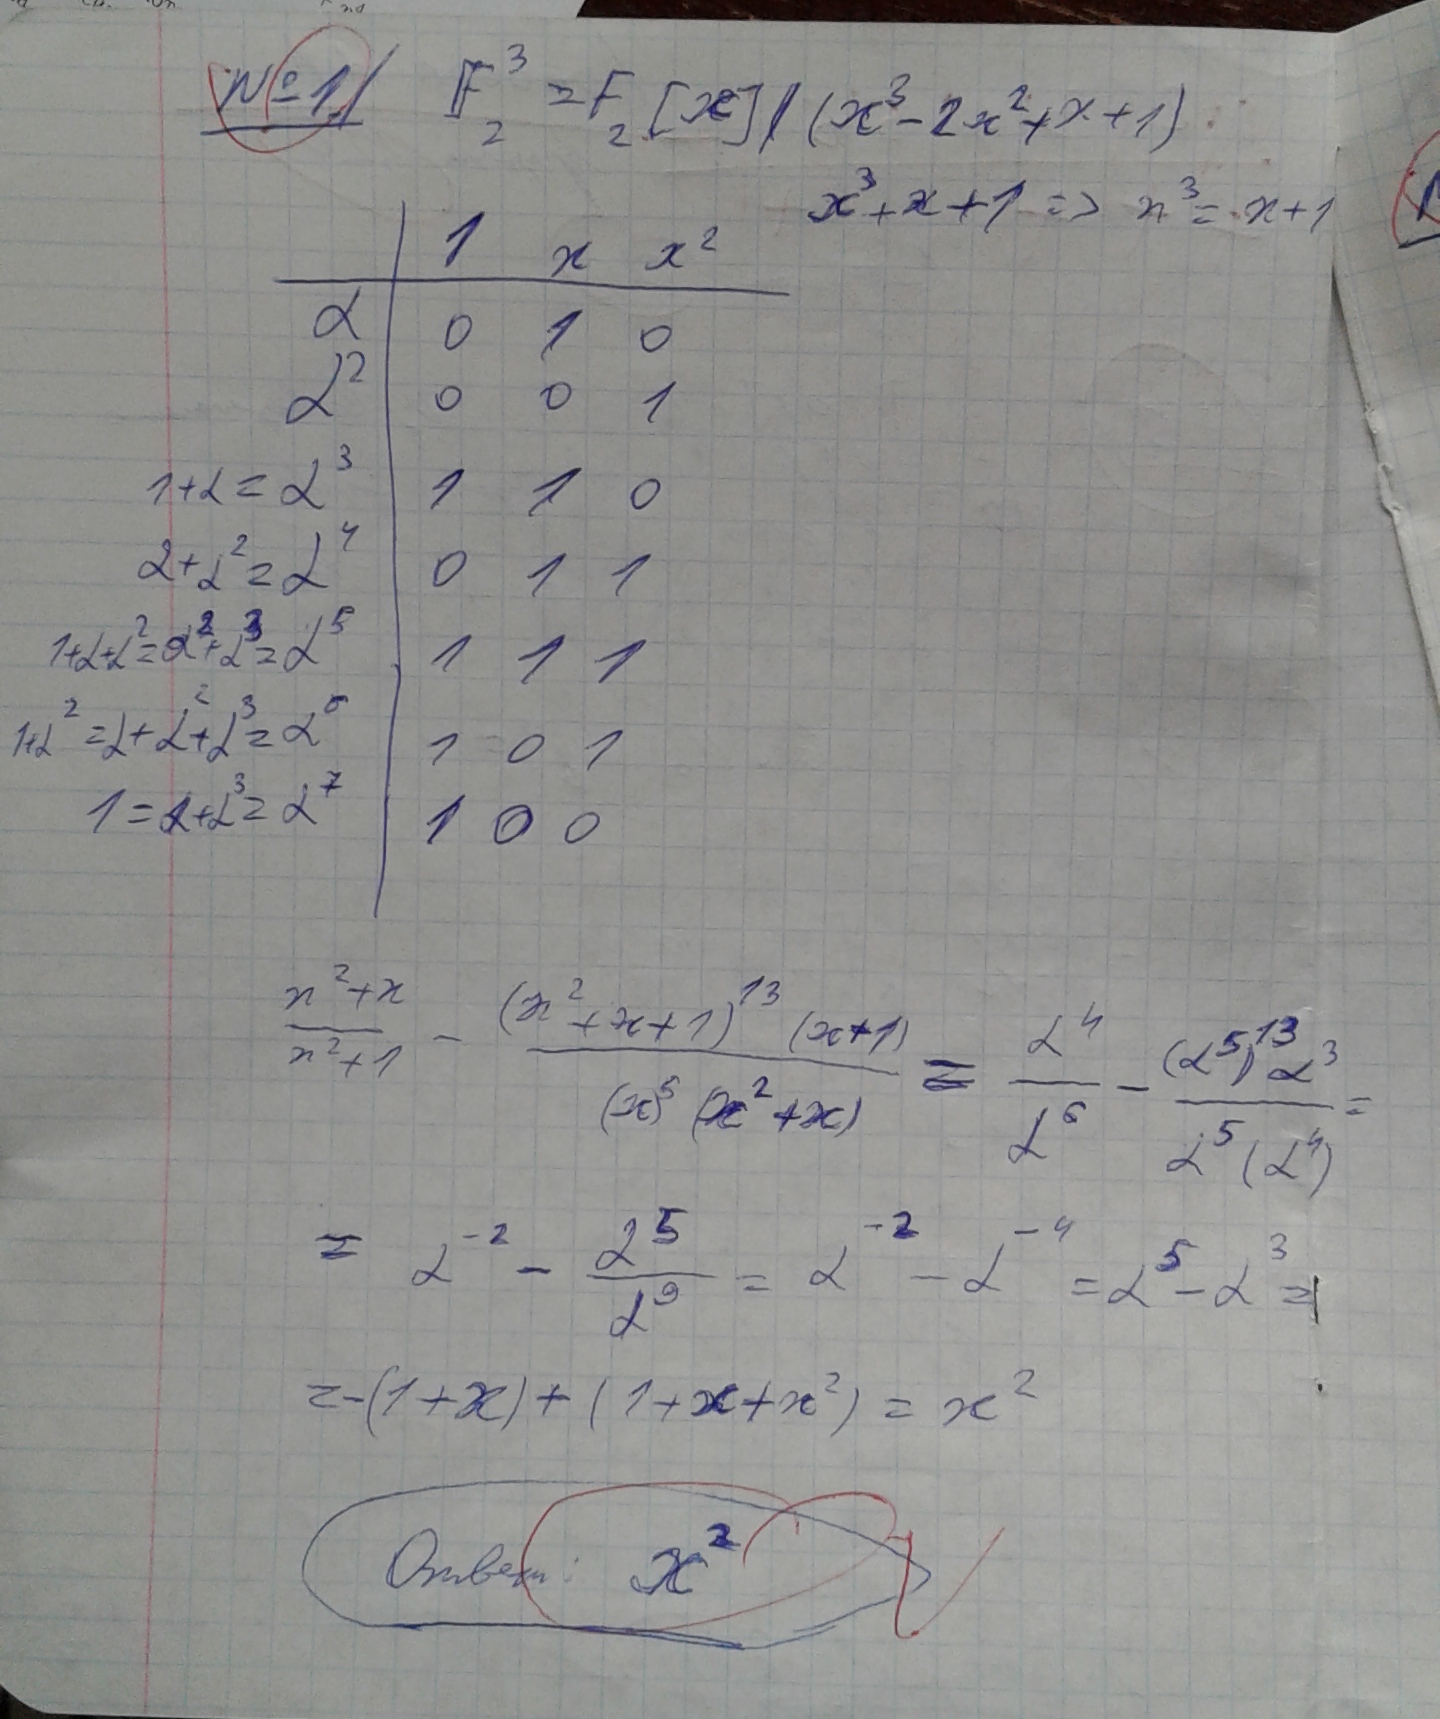 №1/ F₂³ = F₂[x]/(x³-2x²+x+1)
x³+x+1 => x³= x+1
1 x x²
α 0 1 0
α² 0 0 1
1+α = α³ 1 1 0
α+α² = α⁴ 0 1 1
1+α+α² = α²+α³ = α⁵ 1 1 1
1+α² = α+α²+α³ = α⁶ 1 0 1
1 = α+α³ = α⁷ 1 0 0
(x²+x)/(x²+1) - ((x²+x+1)¹³ (x+1))/((x)⁵ (x²+x)) = α⁴/α⁶ - ((α⁵)¹³ α³)/(α⁵(α⁴)) =
= α⁻² - α⁵/α⁹ = α⁻² - α⁻⁴ = α⁵ - α³ =
= -(1+x) + (1+x+x²) = x²
Ответ: x²